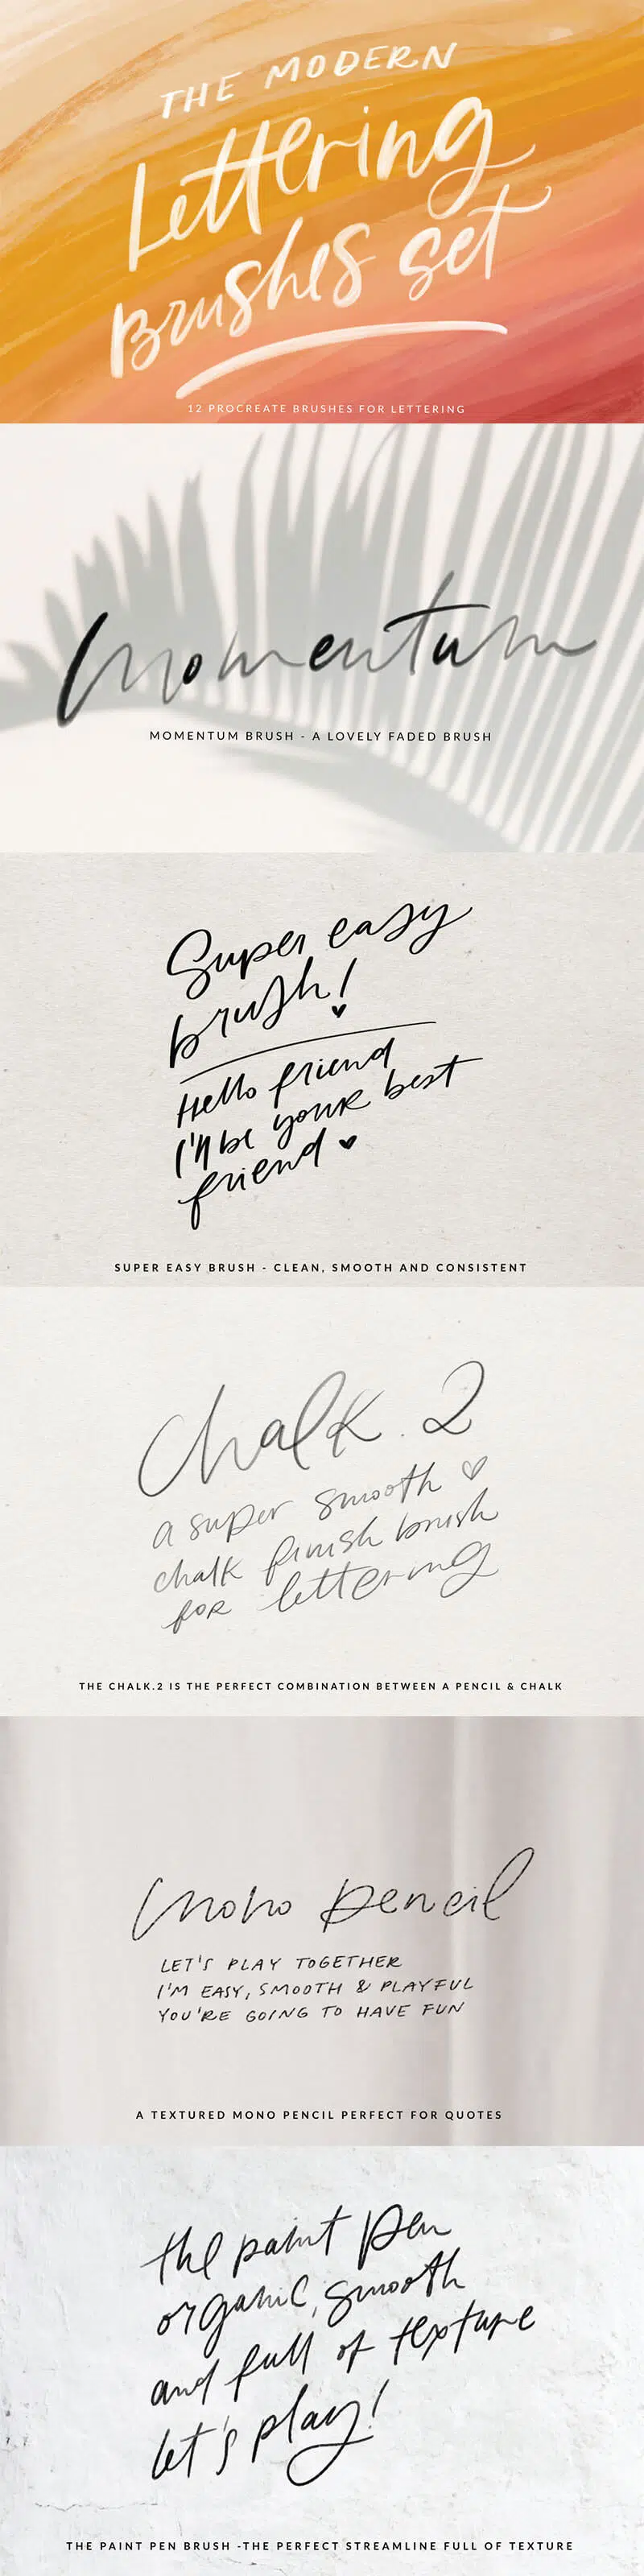 THE MODERN
Lettering
Brushes set
12 PROCREATE BRUSHES FOR LETTERING
Momentum
MOMENTUM BRUSH - A LOVELY FADED BRUSH
Super easy
brush!
Hello friend
I'll be your best
friend
SUPER EASY BRUSH - CLEAN, SMOOTH AND CONSISTENT
Chalk.2
a super smooth
chalk finish brush
for lettering
THE CHALK.2 IS THE PERFECT COMBINATION BETWEEN A PENCIL & CHALK
Mono pencil
LET'S PLAY TOGETHER
I'M EASY, SMOOTH & PLAYFUL
YOU'RE GOING TO HAVE FUN
A TEXTURED MONO PENCIL PERFECT FOR QUOTES
the paint pen
organic, smooth
and full of texture
let's play!
THE PAINT PEN BRUSH -THE PERFECT STREAMLINE FULL OF TEXTURE